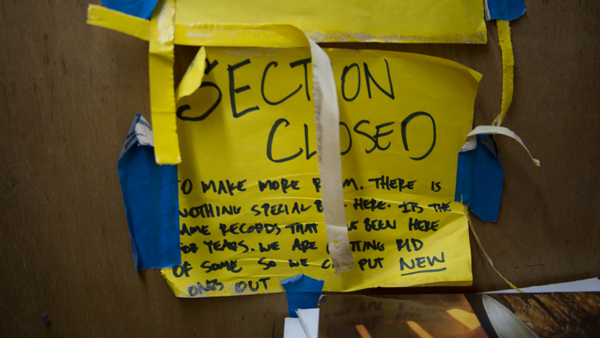 SECTION
CLOSED
TO MAKE MORE ROOM. THERE IS
NOTHING SPECIAL HERE. ITS THE
SAME RECORDS THAT BEEN HERE
FOR YEARS. WE ARE RID
OF SOME SO WE PUT NEW
ONES OUT